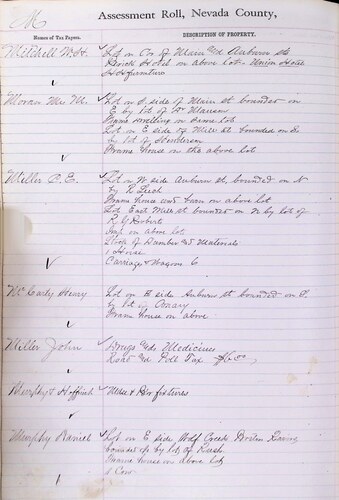 M
Assessment Roll, Nevada County,
Names of Tax Payers.
DESCRIPTION OF PROPERTY.
Mitchell
Lot on Cor of Main & Auburn sts
Brick Hotel on above lot - Union Hotel
Furniture
Moran Mrs M.
Lot on S side of Main st bounded on
E by lot of Dr
Frame dwelling on same lot
Lot on E side of Mill st bounded on S.
by lot of Henderson
Frame house on the above lot
Miller C. E.
Lot on W side Auburn st bounded on N
by R Leech
Frame house and barn on above lot
Lot East Mill st bounded on N by lot of
R Roberts
Imp on above lot
Stock of Lumber & Materials
1 Horse
Carriage & Wagons 6
McCarty Henry
Lot on E side Auburn st bounded on S.
by lot of
Frame house on above
Miller John
Drugs & Medicines
Road & Poll Tax
Murphy &
Mdse & Bar fixtures
Murphy Daniel
Lot on E side Wolf Creek
bounded by lot of Rush
Frame house on above lot
1 Cow